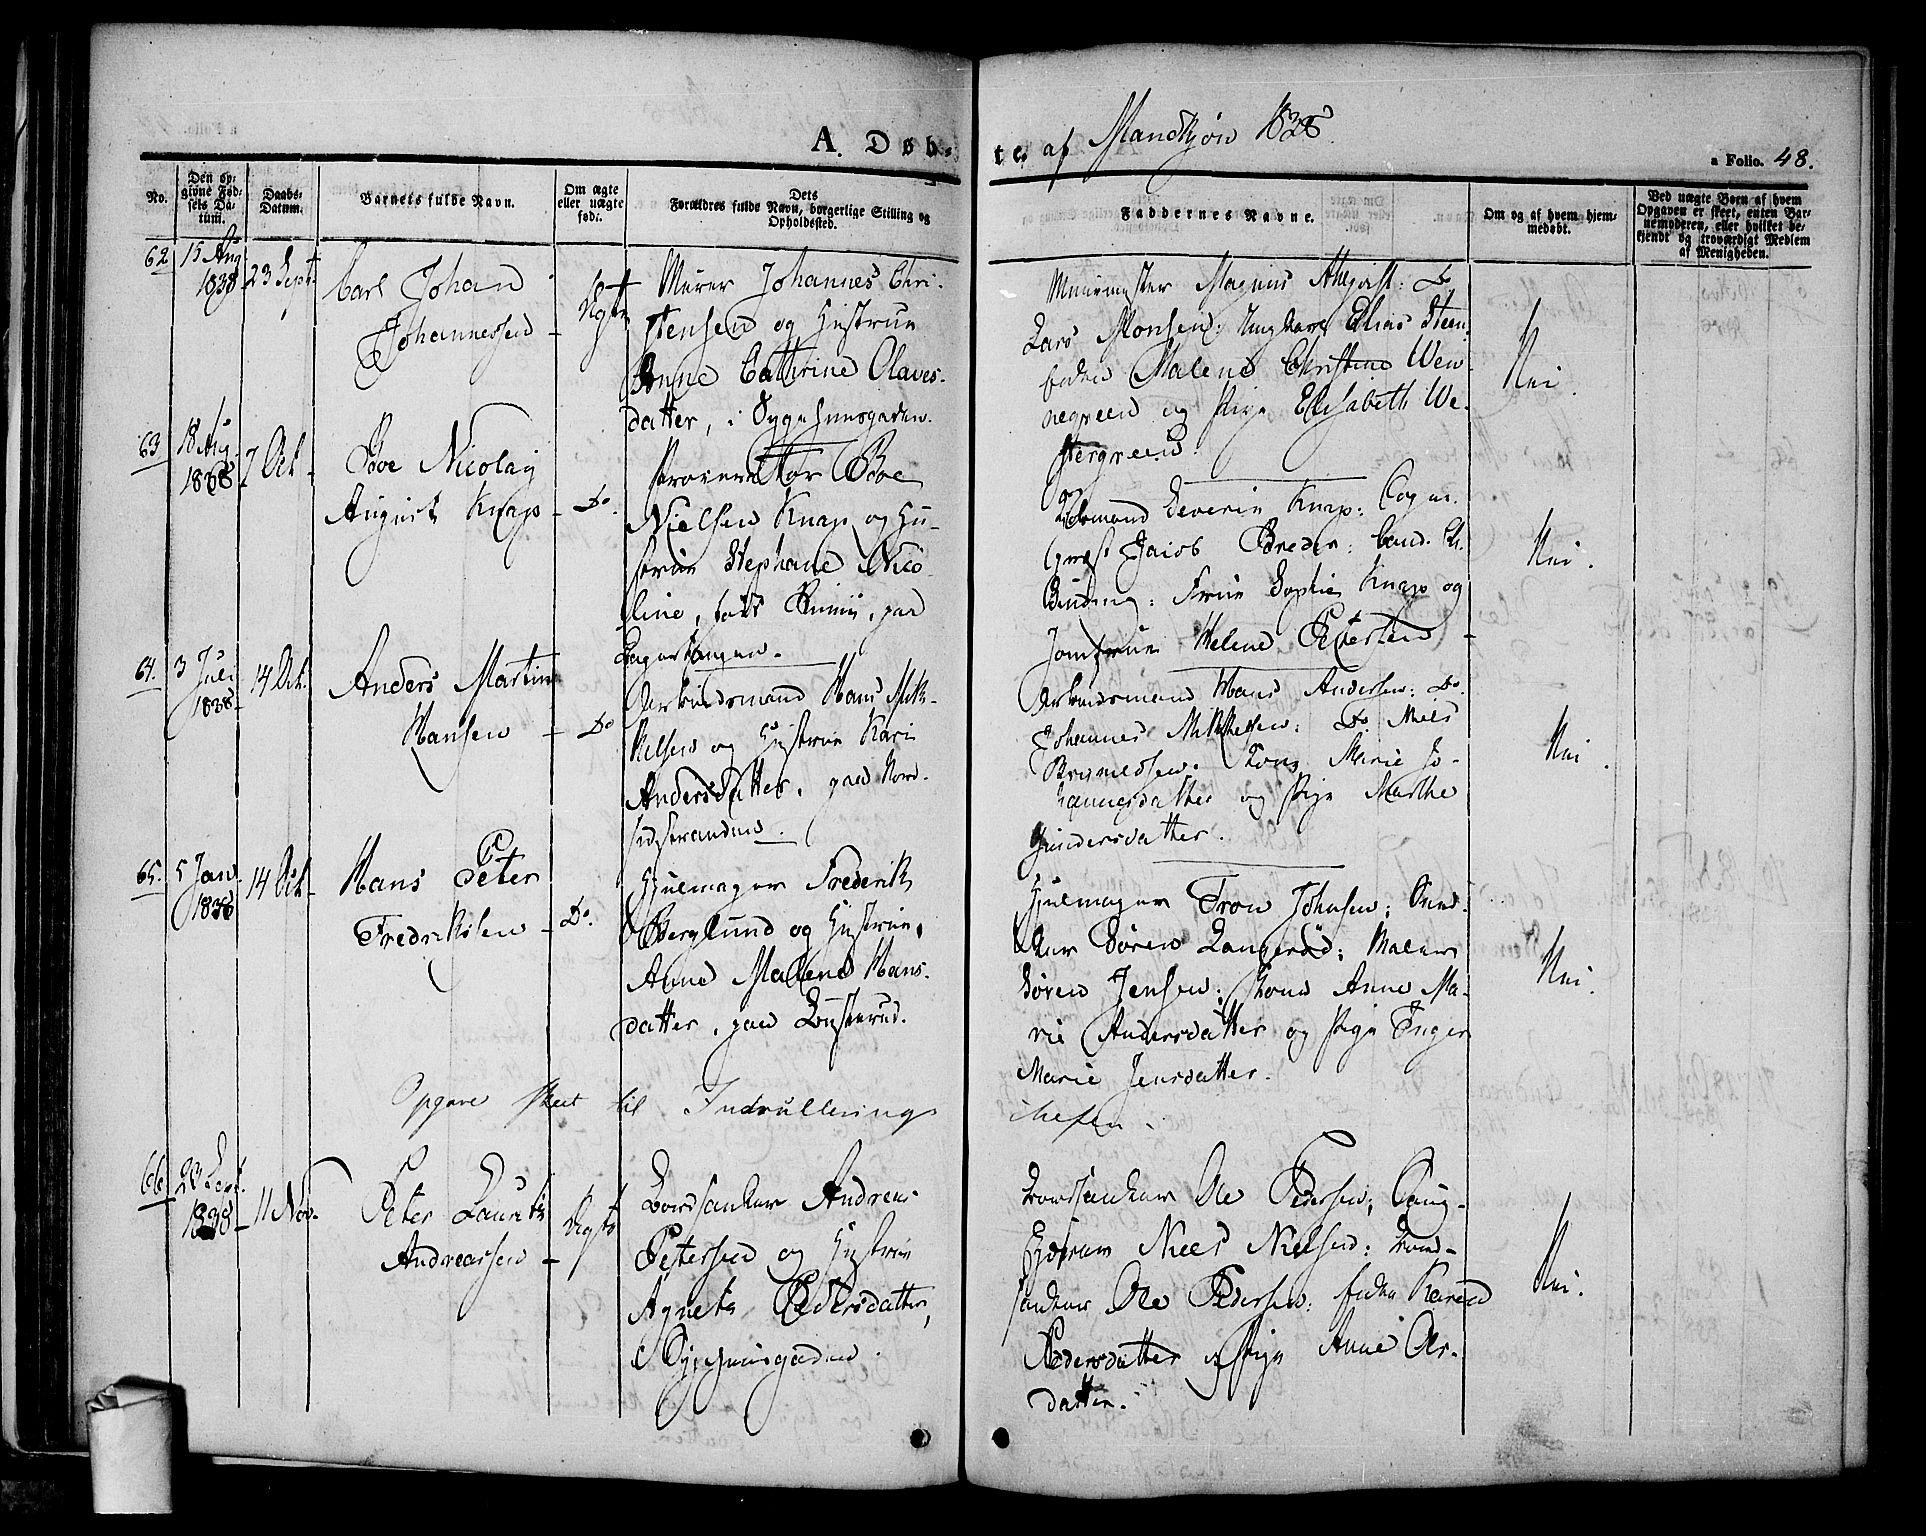 A. Døb-
te, af Mandkjøn 1838.
a Folio. 48.
No.
Den op-
givne Fød-
sels Da-
tum.
Daabs-
Datum.
Barnets fulde Navn.
Om ægte
eller uægte
født.
Dets
Forældres fulde Navn, borgerlige Stilling og
Opholdssted.
Faddernes Navne.
Om og af hvem hjem-
medøbt.
Ved uægte Børn af hvem
Opgaven er skeet, enten Bar-
nemoderen, eller hvilket be-
kjendt og troværdigt Medlem
af Menigheden.
62
15 Aug.
1838
23 Septr
Carl Johan
Johannessen
Ægte
Murer Johannes Chri-
stensen og Hustrue
Anne Cathrine Olaves-
datter, i Sygehuusgaden.
Muurmester Magnus Ahlqvist: Do
Lars Monsen: Ungkarl Elias Steen:
Enken Malene Christine Wen-
negreen og Pige Elisabeth We-
stergreen.
Nei.
63
18 Aug.
1838
7 Oct
Boe Nicolay
August Knap
Do.
Boe
Nielsen Knap og Hu-
strue Stephane Nico-
line, født
Severin Knap:
Jacob Breder: Cand.
Frue Sophie Knap og
Jomfrue Helene Petersen
Nei.
64.
3 Juli
1838
14 Oct.
Anders Martin
Hansen
Do
Arbeidsmand Hans Mik-
kelsen og Hustrue Kari
Andersdatter, paa Nord-
sidstranden.
Arbeidsmand Hans Andersen: Do.
Johannes Mikkelsen: Do Niels
Kone Marie Jo-
hannesdatter og Pige Marthe
Gundersdatter.
Nei.
65.
5 Jan.
1838
14 Oct
Hans Peter
Fredriksen
Do.
Hjulmager Frederik
Berglund og Hustrue,
Anne Malene Hans-
datter, paa
Hjulmager Tron Johnsen: Sned-
ker Søren Langerød: Maler
Søren Jensen: Kone Anne Ma-
rie Andersdatter og Pige Inger
Marie Jensdatter.
Nei.
Opgave skeet til Indrullerings
chefen.
66
23 Sept.
1838
11 Nov.
Peter Laurits
Andreassen
Ægte
Andreas
Petersen og Hustrue
Agnete Pedersdatter,
i Sygehuusgaden.
Ole Pedersen:
Niels Nielsen:
Ole Pedersen: Enke Karen
Pedersdatter og Pige Anne Ols-
datter.
Nei.